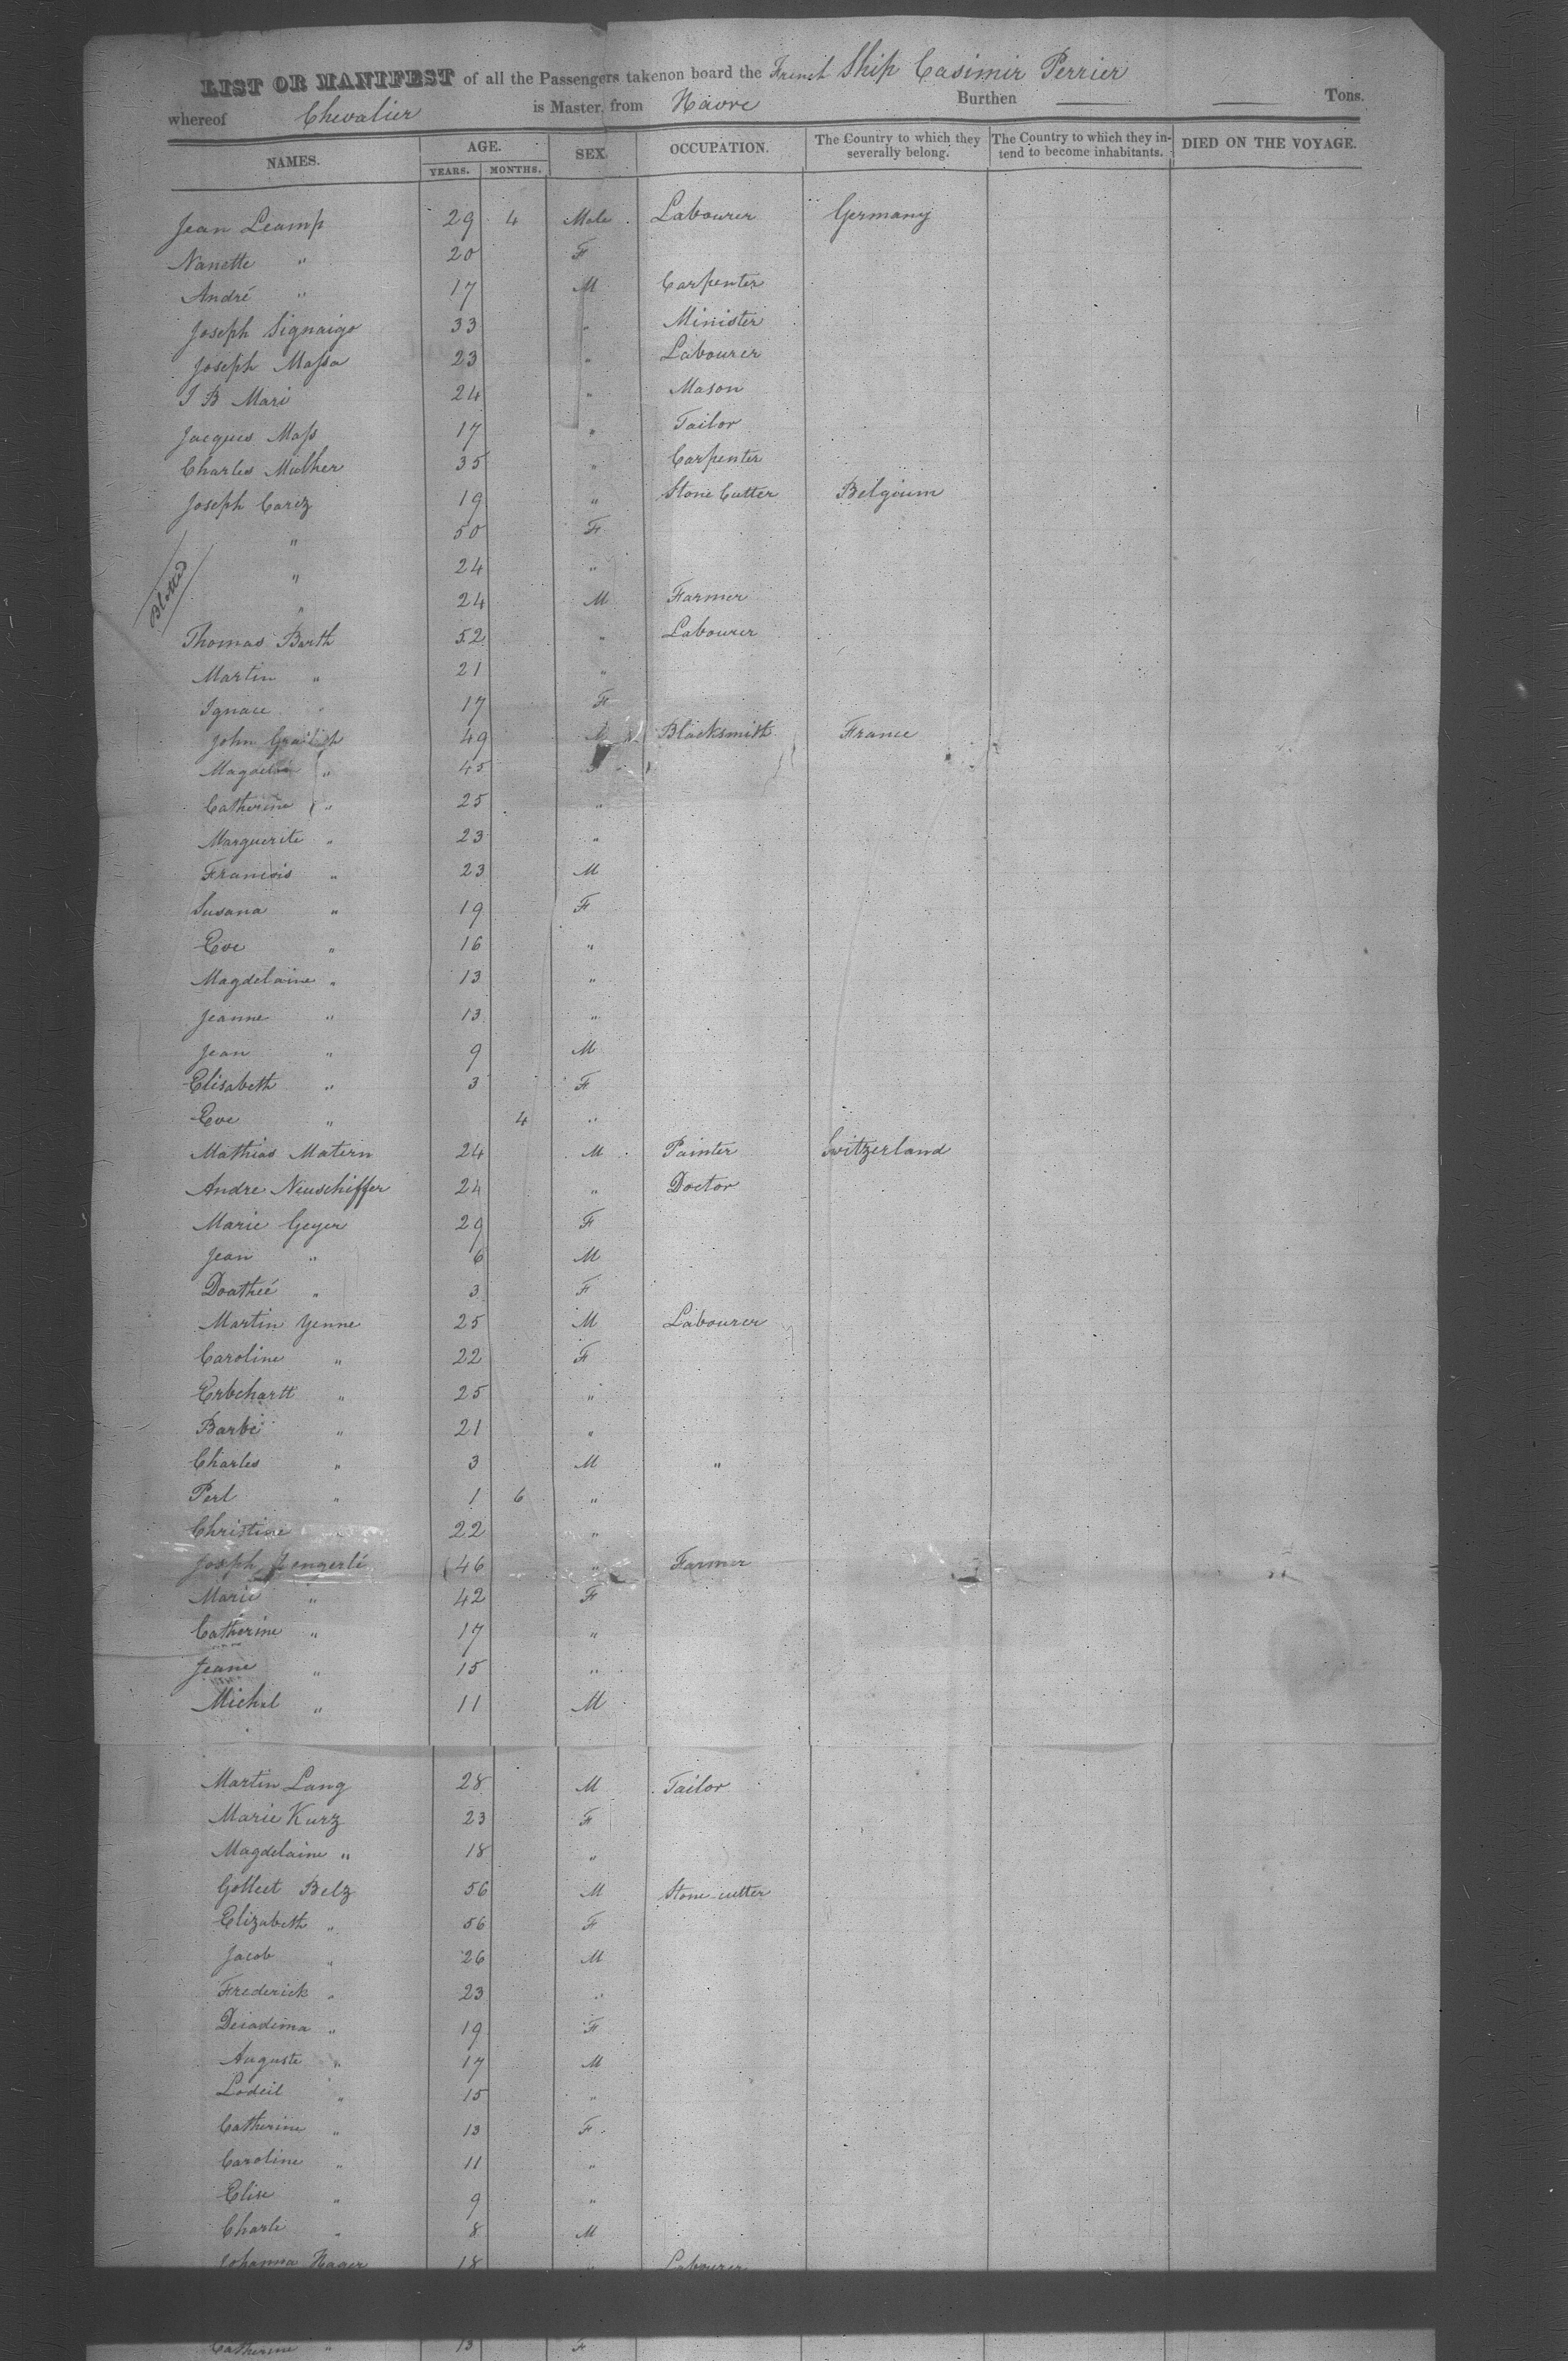 LIST OR MANIFEST of all the Passengers taken on board the French Ship Casimir Perrier
whereof Chevalier is Master, from Havre Burthen Tons.
NAMES. AGE. YEARS. MONTHS. SEX. OCCUPATION. The Country to which they severally belong. The Country to which they intend to become inhabitants. DIED ON THE VOYAGE.
Jean Leamp 29 4 Male Labourer Germany
Nanette " 20 F
André " 17 M Carpenter
Joseph Signaigo 33 " Minister
Joseph Massa 23 " Labourer
J B Mari 24 " Mason
Jacques Mass 17 " Tailor
Charles Mulher 35 " Carpenter
Joseph Carez 19 " Stone Cutter Belgium
" 50 F
" 24 "
Blotted " 24 M Farmer
Thomas Barth 52 " Labourer
Martin " 21 "
Ignace " 17 F
John 49 Blacksmith France
" 45 F
Catherine " 25 "
Marguerite " 23 "
Francois " 23 M
Susana " 19 F
Eve " 16 "
Magdelaine " 13 "
Jeanne " 13 "
Jean " 9 M
Elisabeth " 3 F
Eve " 4 "
Mathias Matern 24 M Painter Switzerland
Andre Neuschiffer 24 " Doctor
Marie Geyer 29 F
Jean " 6 M
Doatheé " 3 F
Martin Yenne 25 M Labourer
Caroline " 22 F
Erbchartt " 25 "
Barbé " 21 "
Charles " 3 M "
Perl " 1 6 "
Christine " 22 "
Joseph 46 " Farmer
Marie " 42 F
Catherine " 17 "
Jeane " 15 "
Michel " 11 M
Martin Lang 28 M Tailor
Marie Kurz 23 F
Magdelaine " 18 "
Gotteet Belz 56 M Stone-cutter
Elizabeth " 56 F
Jacob " 26 M
Frederick " 23 "
Deiadima " 19 F
Auguste " 17 M
Lodeil " 15 "
Catherine " 13 F
Caroline " 11 "
Elise " 9 "
Charle " 8 M
Johanna Hager 18 " Labourer
Catherine " 13 F